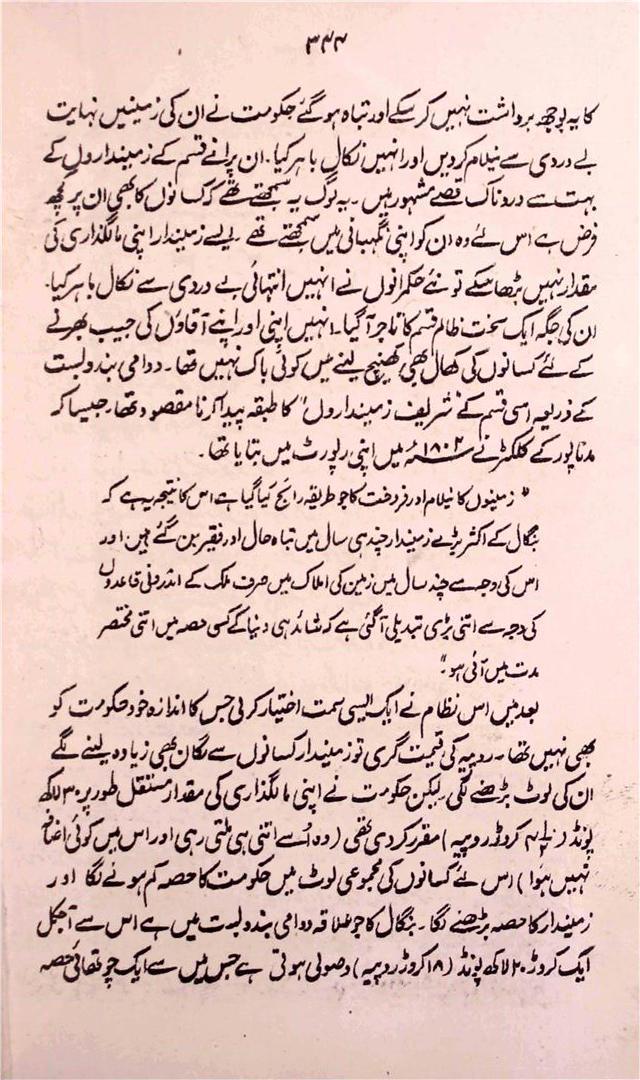 ۳۴۴
کا یہ بوجھ برداشت نہیں کر سکے اور تباہ ہو گئے حکومت نے ان کی زمینیں نہایت
بے دردی سے نیلام کر دیں اور انہیں نکال باہر کیا۔ ان پرانے قسم کے زمینداروں کے
بہت سے دردناک قصے مشہور ہیں۔ یہ لوگ یہ سمجھتے تھے کہ کسانوں کا بھی ان پر کچھ
فرض ہے اس لئے وہ ان کو اپنی نگہبانی میں سمجھتے تھے۔ ایسے زمیندار اپنی مالگذاری کی
مقدار نہیں بڑھا سکے تو نئے حکمرانوں نے انہیں انتہائی بے دردی سے نکال باہر کیا۔
ان کی جگہ ایک سخت ظالم قسم کا تاجر آگیا۔ انہیں اپنی اور اپنے آقاؤں کی جیب بھرنے
کے لئے کسانوں کی کھال بھی کھینچ لینے میں کوئی باک نہیں تھا۔ دوامی بندوبست
کے ذریعہ اسی قسم کے "شریف زمینداروں" کا طبقہ پیدا کرنا مقصود تھا۔ جیسا کہ
مدناپور کے کلکٹر نے ۱۸۰۲ء میں اپنی رپورٹ میں بتایا تھا۔
"زمینوں کا نیلام اور فروخت کا جو طریقہ رائج کیا گیا ہے اس کا نتیجہ یہ ہے کہ
بنگال کے اکثر بڑے زمیندار چند ہی سال میں تباہ حال اور فقیر بن گئے ہیں اور
اس کی وجہ سے چند سال میں زمین کی املاک میں صرف ملک کے اندرونی قاعدوں
کی وجہ سے اتنی بڑی تبدیلی آگئی ہے کہ شائد ہی دنیا کے کسی حصہ میں اتنی مختصر
مدت میں آئی ہو۔"
بعد میں اس نظام نے ایک ایسی سمت اختیار کر لی جس کا اندازہ خود حکومت کو
بھی نہیں تھا۔ روپیہ کی قیمت گری تو زمیندار کسانوں سے لگان بھی زیادہ لینے لگے
ان کی لوٹ بڑھنے لگی لیکن حکومت نے اپنی مالگذاری کی مقدار مستقل طور پر ۳۰ لاکھ
پونڈ (۴½ کروڑ روپیہ) مقرر کر دی تھی (وہ اُسے اتنی ہی ملتی رہی اور اس میں کوئی اضافہ
نہیں ہوا) اس لئے کسانوں کی مجموعی لوٹ میں حکومت کا حصہ کم ہونے لگا اور
زمیندار کا حصہ بڑھنے لگا۔ بنگال کا جو علاقہ دوامی بندوبست میں ہے اس سے آجکل
ایک کروڑ ۲۰ لاکھ پونڈ (۱۸ کروڑ روپیہ) وصولی ہوتی ہے جس میں سے ایک چوتھائی حصہ